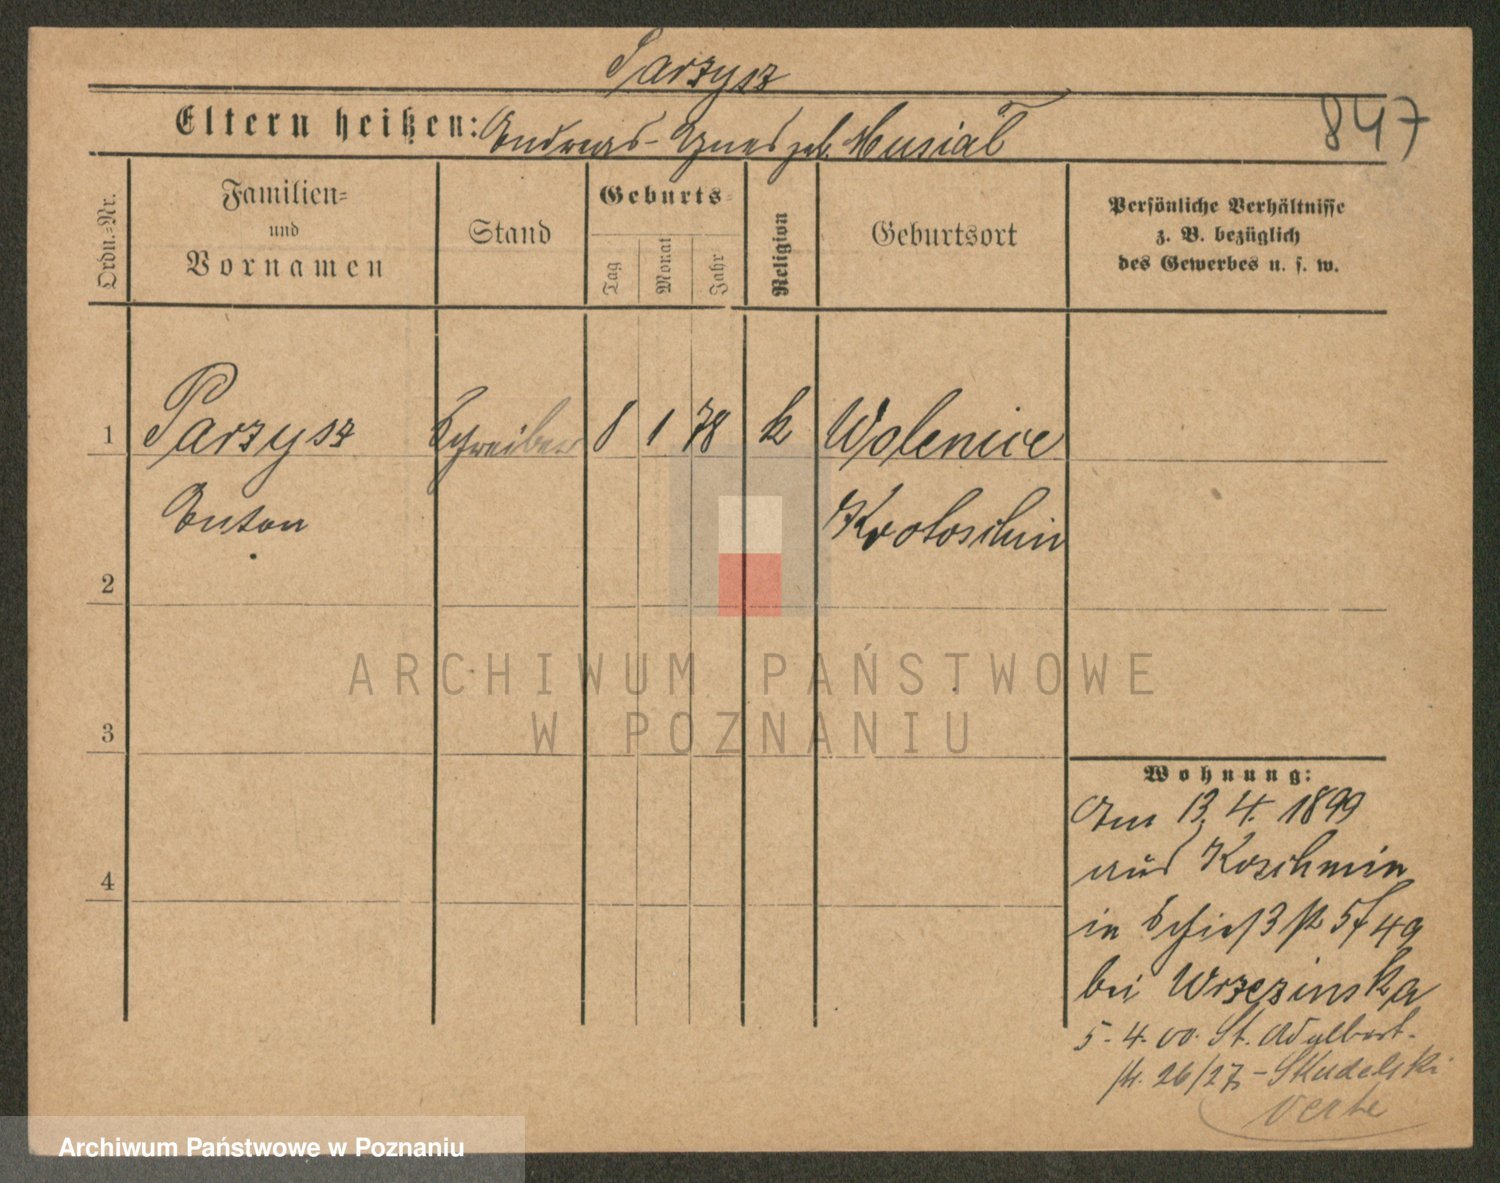 Parzysz
847
Eltern heißen: Andreas - Agnes geb. Musiał
Ordn.=Nr.
Familien=
und
Vornamen
Stand
Geburts=
Tag
Monat
Jahr
Religion
Geburtsort
Persönliche Verhältnisse
z. B. bezüglich
des Gewerbes u. s. w.
1 Parzysz Schreiber 8 1 78 k Wolenice
Anton Krotoschin
2
3
4
ARCHIWUM PAŃSTWOWE
W POZNANIU
Wohnung:
Am 13. 4. 1899
aus Koschmin
in Schießstr
bei Wrzezinska
5. 4. 00. St. Adalbert-
str. 26/27 - Skudelski
verte
Archiwum Państwowe w Poznaniu